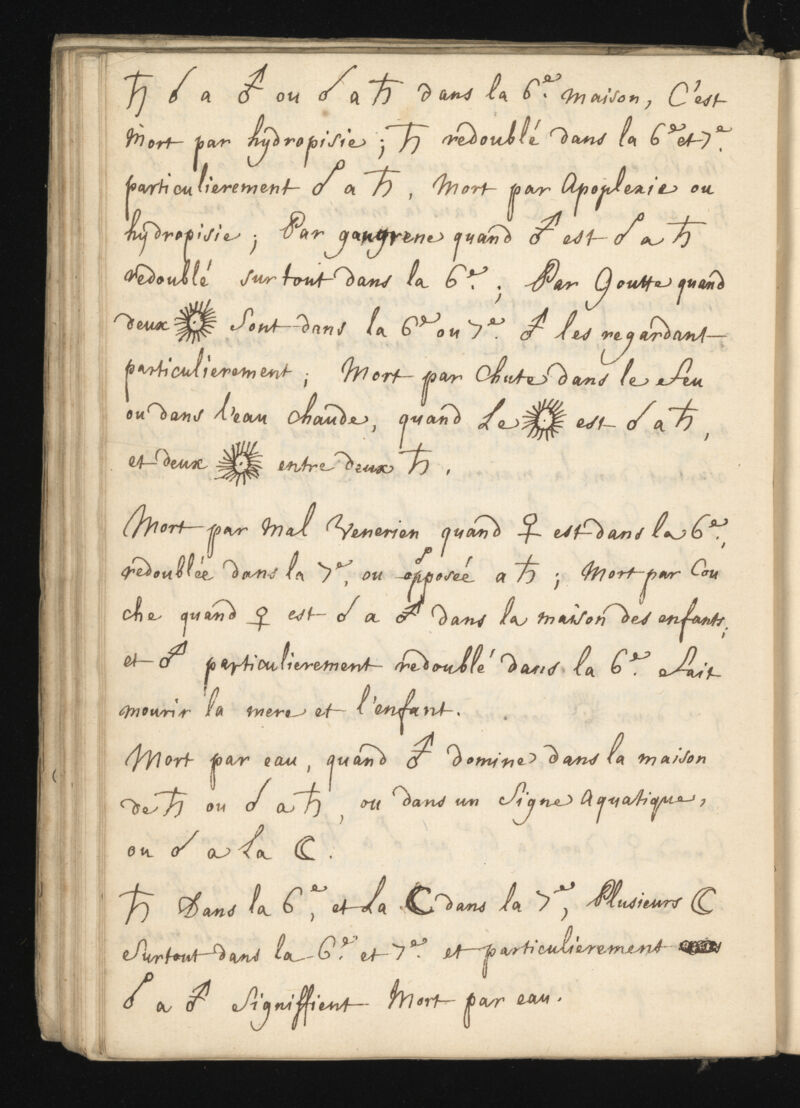 ♄ ☌ a ♂ ou ☌ a ♄ dans la 6.e maison, C'est
Mort par hydropisie; ♄ redoublé dans la 6.e et 7.e
particulierement ☍ a ♄, Mort par Apoplexie ou
hydropisie; Par gangrene quand ♂ est ☌ a ♄
redoublé surtout dans la 6.e; Par Goutte quand
deux ☉ Sont dans la 6.e ou 7.e ♂ les regardant
particulierement; Mort par Chute dans le feu
ou dans l'eau chaude, quand Le ☉ est ☌ a ♄,
et deux ☉ entre deux ♄.
Mort par Mal Venerien quand ♀ est dans la 6.e,
redoublée dans la 7.e, ou opposée ☍ a ♄; Mort par Cou
che quand ♀ est ☌ a ♂ dans la maison des enfants;
et ♂ particulierement redoublé dans la 6.e fait
mourir la mere et l'enfant.
Mort par eau, quand ♂ domine dans la maison
de ♄ ou ☌ a ♄, ou dans un Signe Aquatique,
ou ☌ a La ☾.
♄ Dans la 6.e, et La ☾ dans la 7.e, Plusieurs ☾
Surtout dans la 6.e et 7.e et particulierement
☍ a ♂ Signiffient Mort par eau.